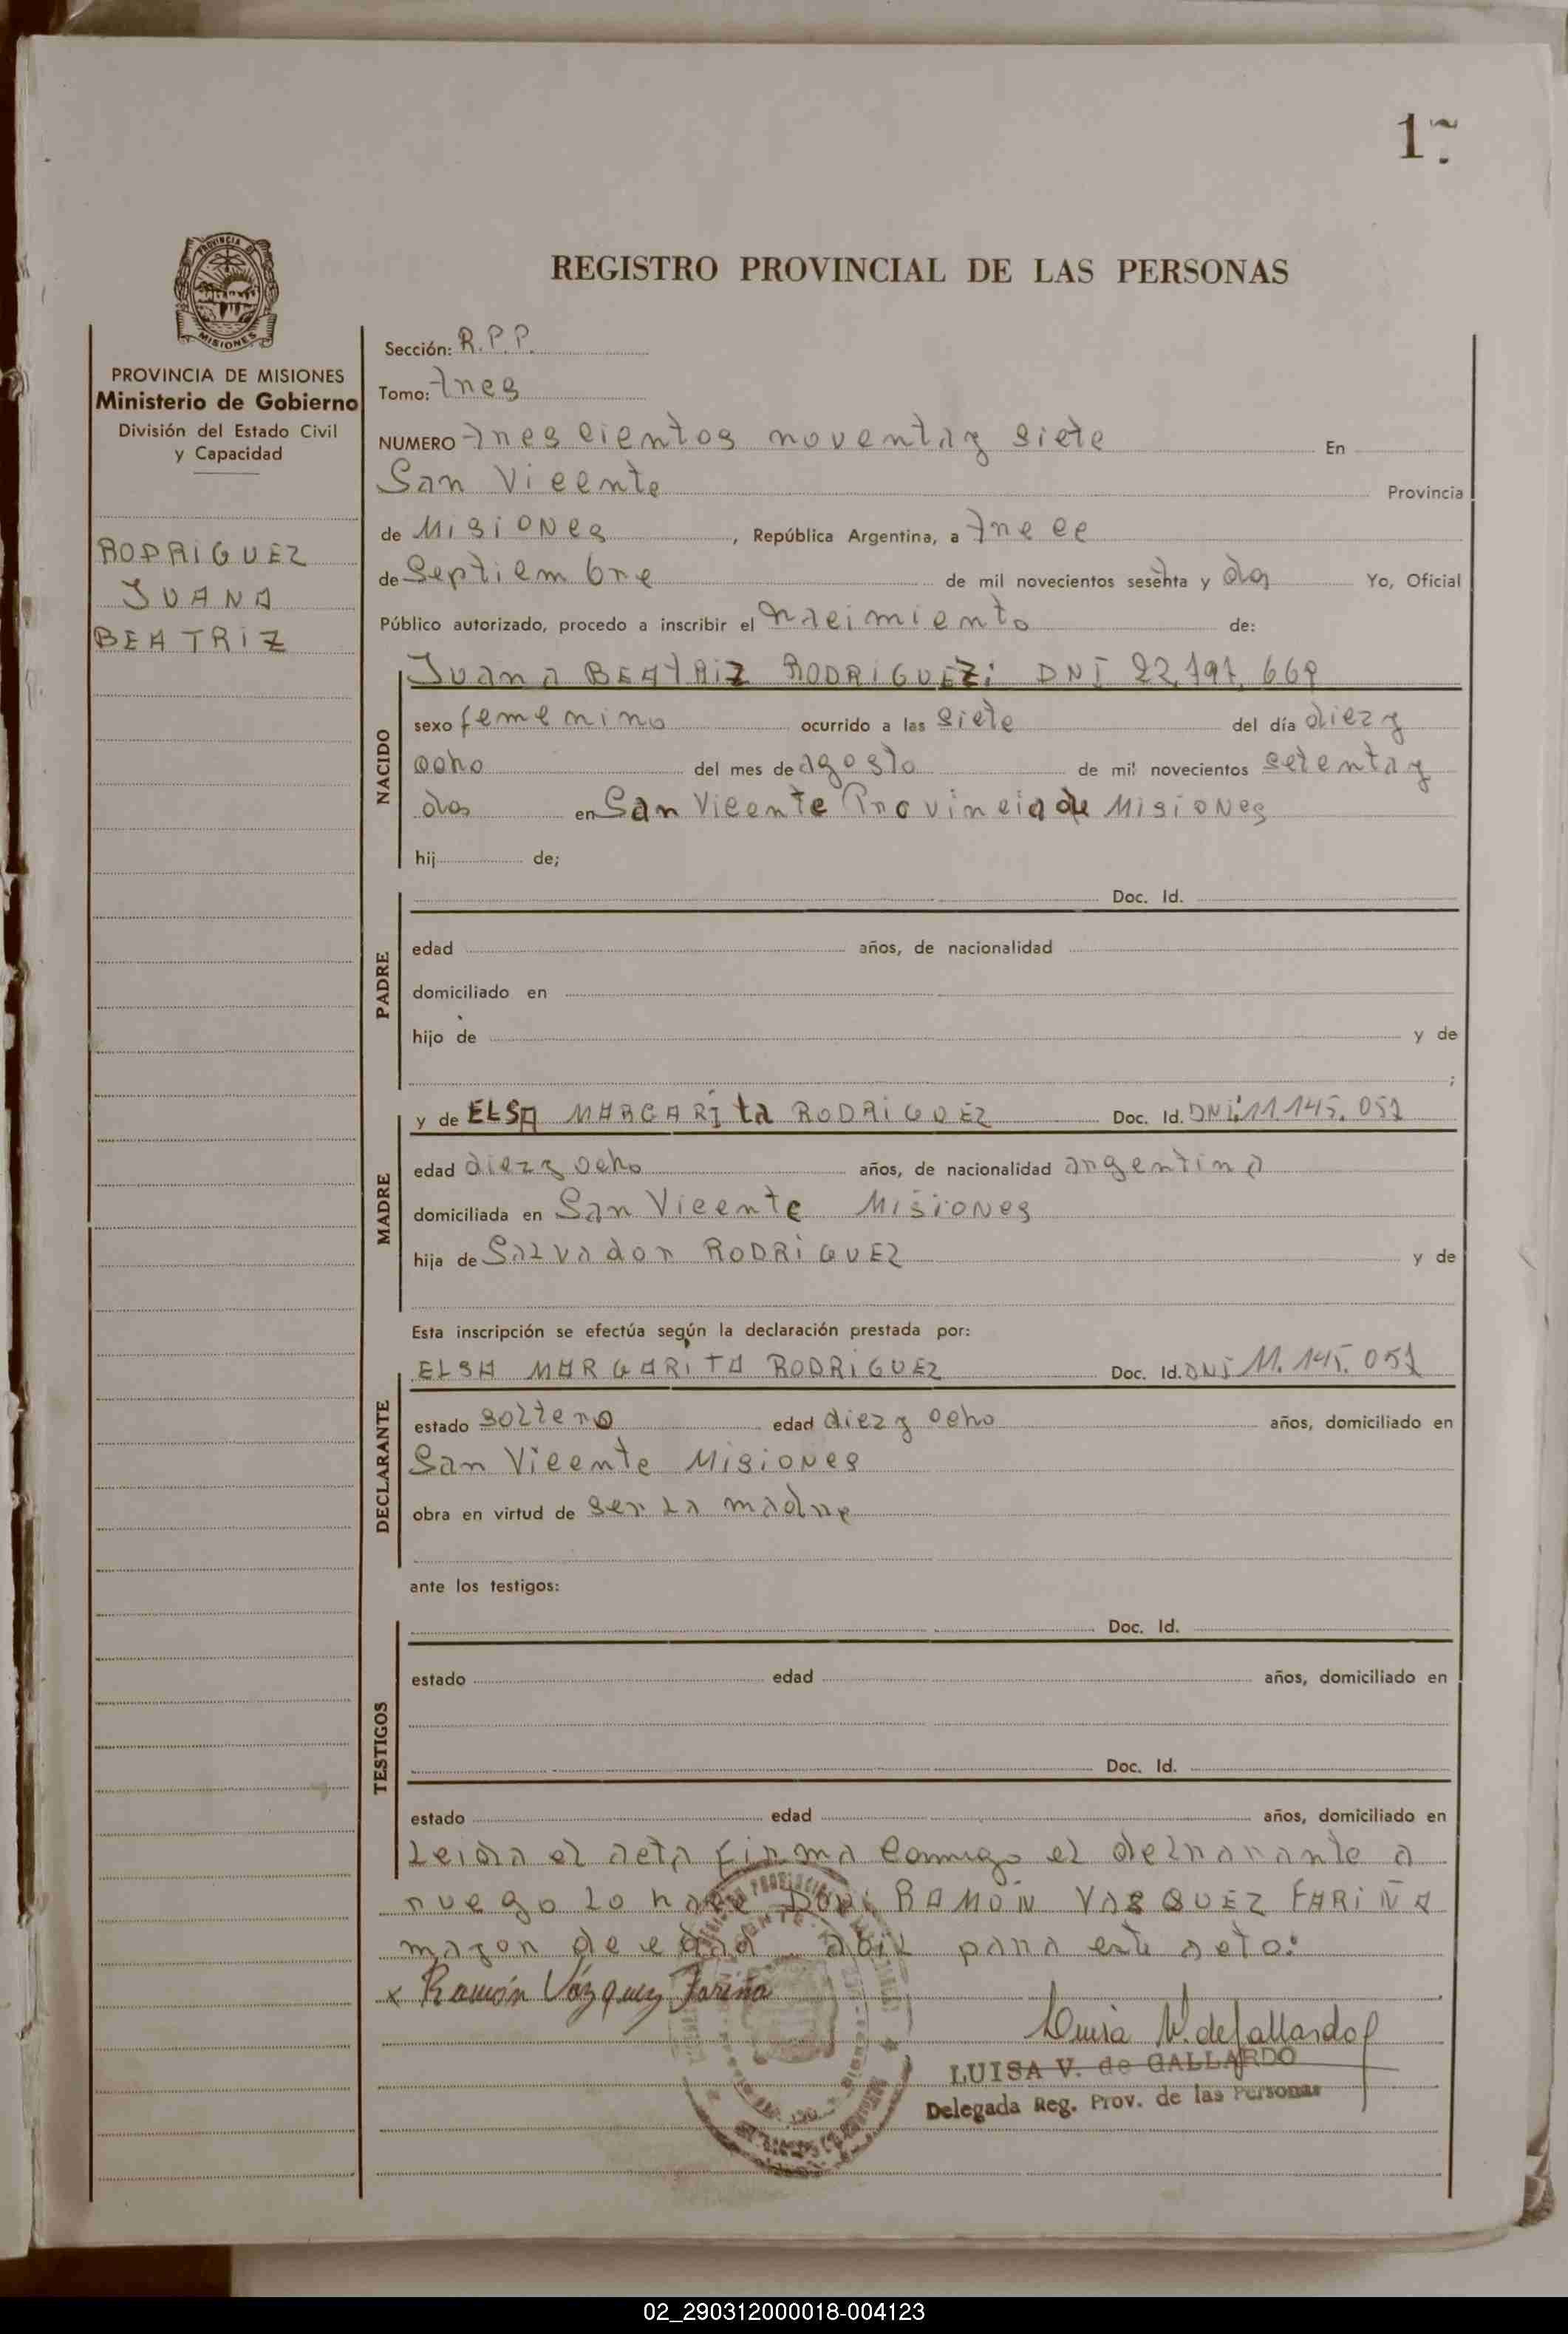 REGISTRO PROVINCIAL DE LAS PERSONAS
PROVINCIA DE
MISIONES
PROVINCIA DE MISIONES
Ministerio de Gobierno
División del Estado Civil
y Capacidad
RODRIGUEZ
JUANA
BEATRIZ
Sección: R.P.P.
Tomo: tres
NUMERO trescientos noventay siete En
San Vicente Provincia
de Misiones, República Argentina, a trece
de Septiembre de mil novecientos sesenta y dos Yo, Oficial
Público autorizado, procedo a inscribir el nacimiento de:
NACIDO
Juana BEATRIZ RODRIGUEZ: DNI
sexo femenino ocurrido a las siete del día diezy
ocho del mes de agosto de mil novecientos setentay
dos en San Vicente Provincia de Misiones
hij de;
PADRE
Doc. Id.
edad años, de nacionalidad
domiciliado en
hijo de y de
;
MADRE
y de ELSA MARGARita RODRIGUEZ Doc. Id. DNI: 11.145.051
edad diezy ocho años, de nacionalidad argentina
domiciliada en San Vicente Misiones
hija de Salvador RODRIGUEZ y de
Esta inscripción se efectúa según la declaración prestada por:
DECLARANTE
ELSA MARGARITA RODRIGUEZ Doc. Id. DNI 11.145.051
estado soltera edad diezy ocho años, domiciliado en
San Vicente Misiones
obra en virtud de ser la madre
ante los testigos:
TESTIGOS
Doc. Id.
estado edad años, domiciliado en
Doc. Id.
estado edad años, domiciliado en
Leida el acta firma conmigo el a
ruego lo hace Don: RAMÓN VASQUEZ FARIÑA
mayor de edad abil para este acto:
x Ramón Vázquez Fariña
Luisa V. de Gallardo
LUISA V. de GALLARDO
Delegada Reg. Prov. de las Personas
02_290312000018-004123